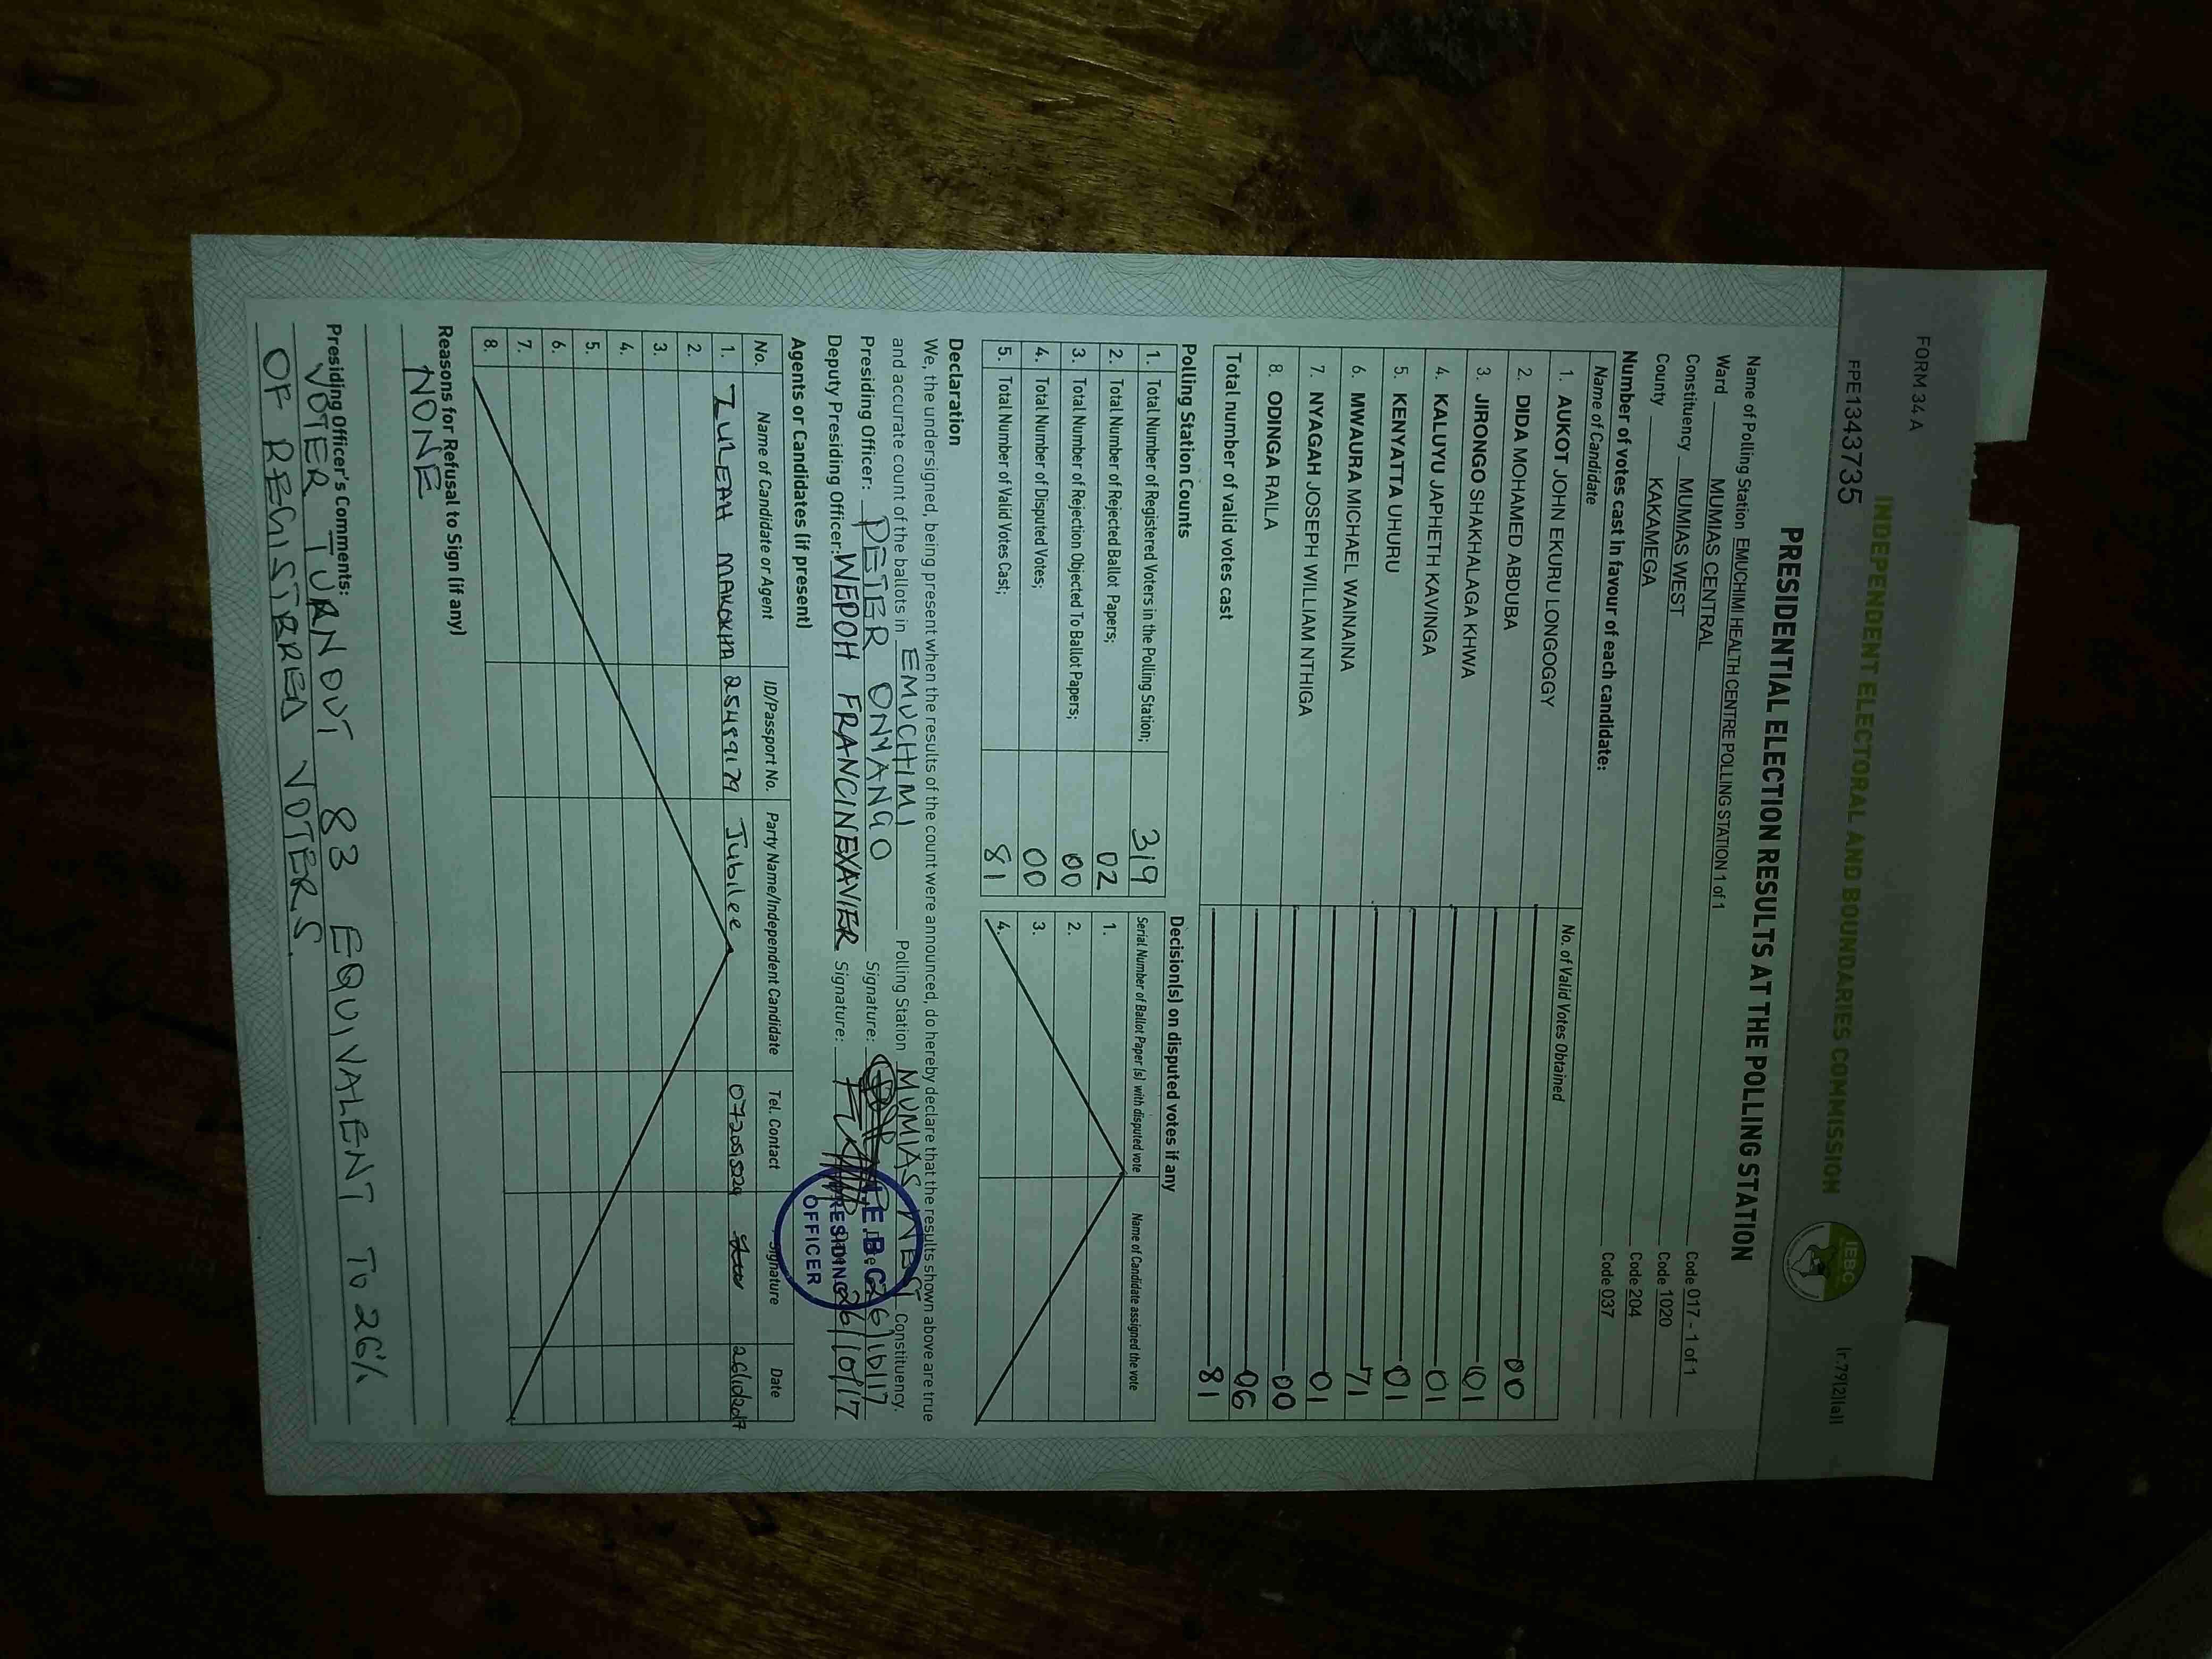 FORM 34 A
Ir.79(2)(a)
FPE1343735
INDEPENDENT ELECTORAL AND BOUNDARIES COMMISSION
IEBC
PRESIDENTIAL ELECTION RESULTS AT THE POLLING STATION
Name of Polling Station EMUCHIMI HEALTH CENTRE POLLING STATION 1 of 1 Code 017 - 1 of 1
Ward MUMIAS CENTRAL Code 1020
Constituency MUMIAS WEST Code 204
County KAKAMEGA Code 037
Number of votes cast in favour of each candidate:
Name of Candidate No. of Valid Votes Obtained
1. AUKOT JOHN EKURU LONGOGGY 00
2. DIDA MOHAMED ABDUBA 01
3. JIRONGO SHAKHALAGA KHWA 01
4. KALUYU JAPHETH KAVINGA 01
5. KENYATTA UHURU 71
6. MWAURA MICHAEL WAINAINA 01
7. NYAGAH JOSEPH WILLIAM NTHIGA 00
8. ODINGA RAILA 06
Total number of valid votes cast 81
Polling Station Counts
1. Total Number of Registered Voters in the Polling Station; 319
2. Total Number of Rejected Ballot Papers; 02
3. Total Number of Rejection Objected To Ballot Papers; 00
4. Total Number of Disputed Votes; 00
5. Total Number of Valid Votes Cast; 81
Decision(s) on disputed votes if any
Serial Number of Ballot Paper (s) with disputed vote Name of Candidate assigned the vote
1.
2.
3.
4.
Declaration
We, the undersigned, being present when the results of the count were announced, do hereby declare that the results shown above are true
and accurate count of the ballots in EMUCHIMI Polling Station MUMIAS WEST Constituency.
Presiding Officer: PETER ONYANGO Signature: 26/10/17
Deputy Presiding Officer: WEPOH FRANCINEXAVIER Signature: 26/10/17
I.E.B.C
PRESIDING
OFFICER
Agents or Candidates (if present)
No. Name of Candidate or Agent ID/Passport No. Party Name/Independent Candidate Tel. Contact Signature Date
1. ZULEAH MAKOKHA 25489179 Jubilee 26/10/2017
2.
3.
4.
5.
6.
7.
8.
Reasons for Refusal to Sign (if any)
NONE
Presiding Officer's Comments:
VOTER TURNOUT 83 EQUIVALENT TO 26%
OF REGISTRRED VOTERS.